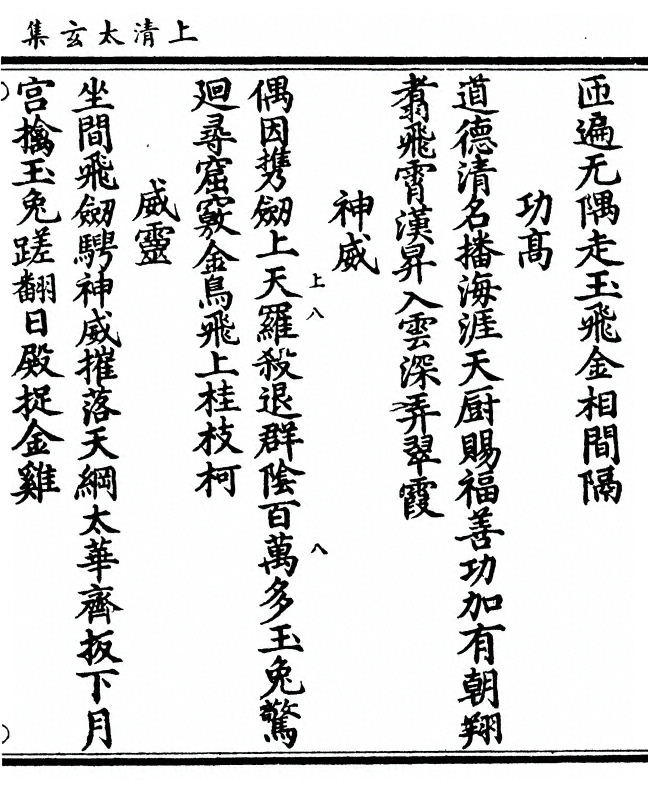 上清太玄集
匝遍无隅走玉飛金相間隔
功高
道德清名播海涯天厨賜福善功加有朝翔
翥飛霄漢昇入雲深弄翠霞
神威
偶因携劒上天羅殺退群陰百萬多玉兔驚
上八
八
廻尋窟竅金烏飛上桂枝柯
威靈
坐間飛劒騁神威摧落天綱太華齊扳下月
宮擒玉兔蹉翻日殿捉金雞